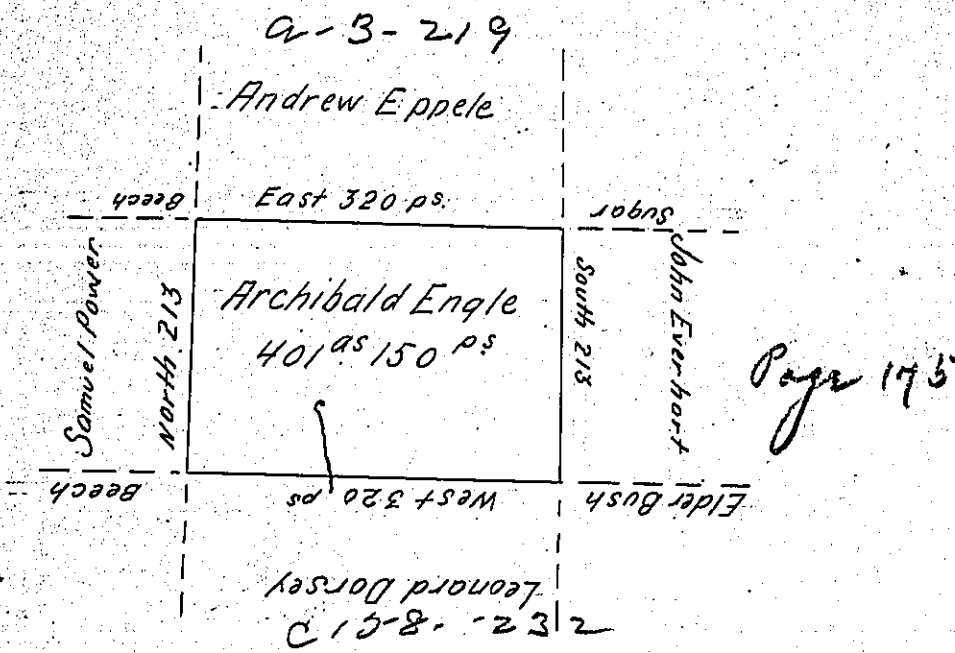 a-3-219
Andrew Eppele
East 320 ps.
Beech
Sugar
Samuel Power
North 213
Archibald Engle
401 as 150 ps.
South 213
John Everhart
Page 175
Beech
West 320 ps
Elder Bush
Leonard Dorsey